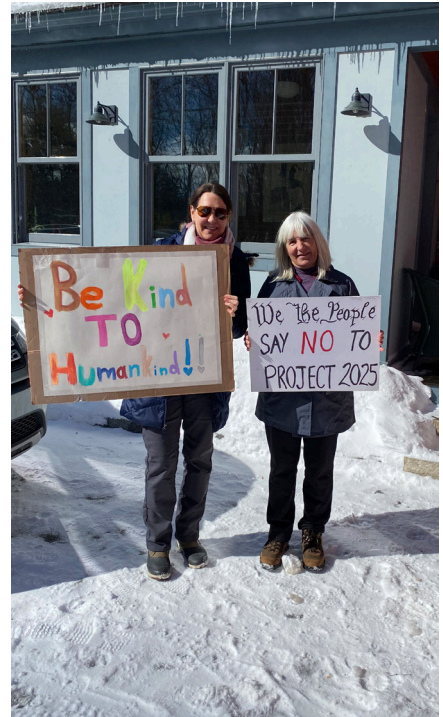 Be Kind
TO
Humankind!!
We The People
SAY NO TO
PROJECT 2025